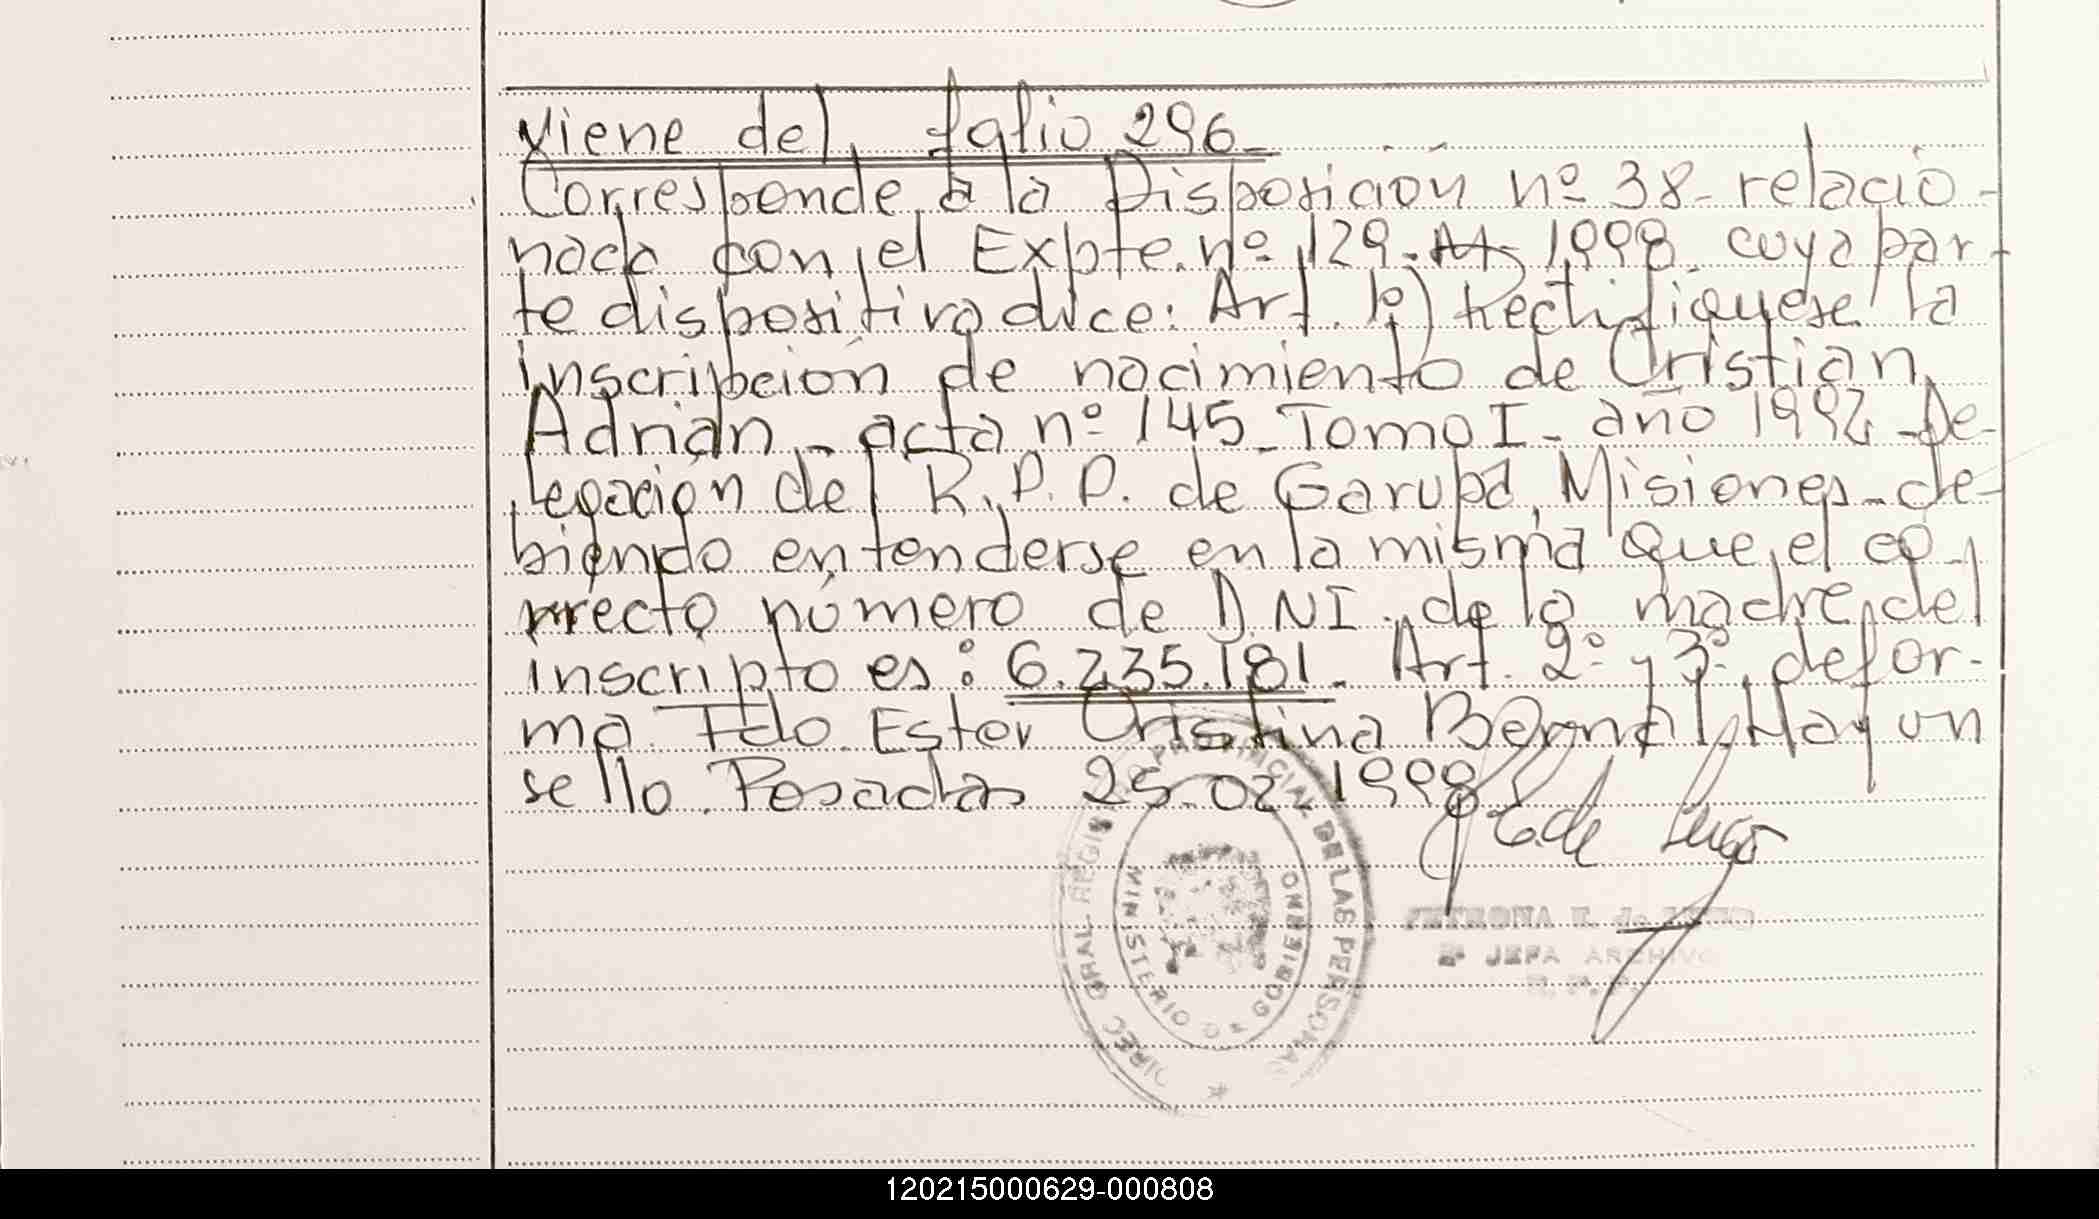 Viene del folio 296-
Corresponde a la Disposición nº 38- relacio-
nada con el Expte. nº 129- M- 1998. cuya par-
te dispositiva dice: Art. 1º) Rectifíquese la
inscripción de nacimiento de Cristian
Adrián - acta nº 145 - Tomo I - año 1992 - De-
legación del R.P.P. de Garupá, Misiones - de-
biendo entenderse en la misma que el co-
rrecto número de D.NI. de la madre del
inscripto es: 6.235.181. Art. 2º y 3º de for-
ma. Fdo. Ester Cristina Bernal. Hay un
sello. Posadas 25-02-1998
P. E. de Lugo
DIREC. GRAL. REGISTRO PROVINCIAL DE LAS PERSONAS
MINISTERIO DE GOBIERNO
PETRONA E. de LUGO
2º JEFA ARCHIVO
R. P. P.
120215000629-000808